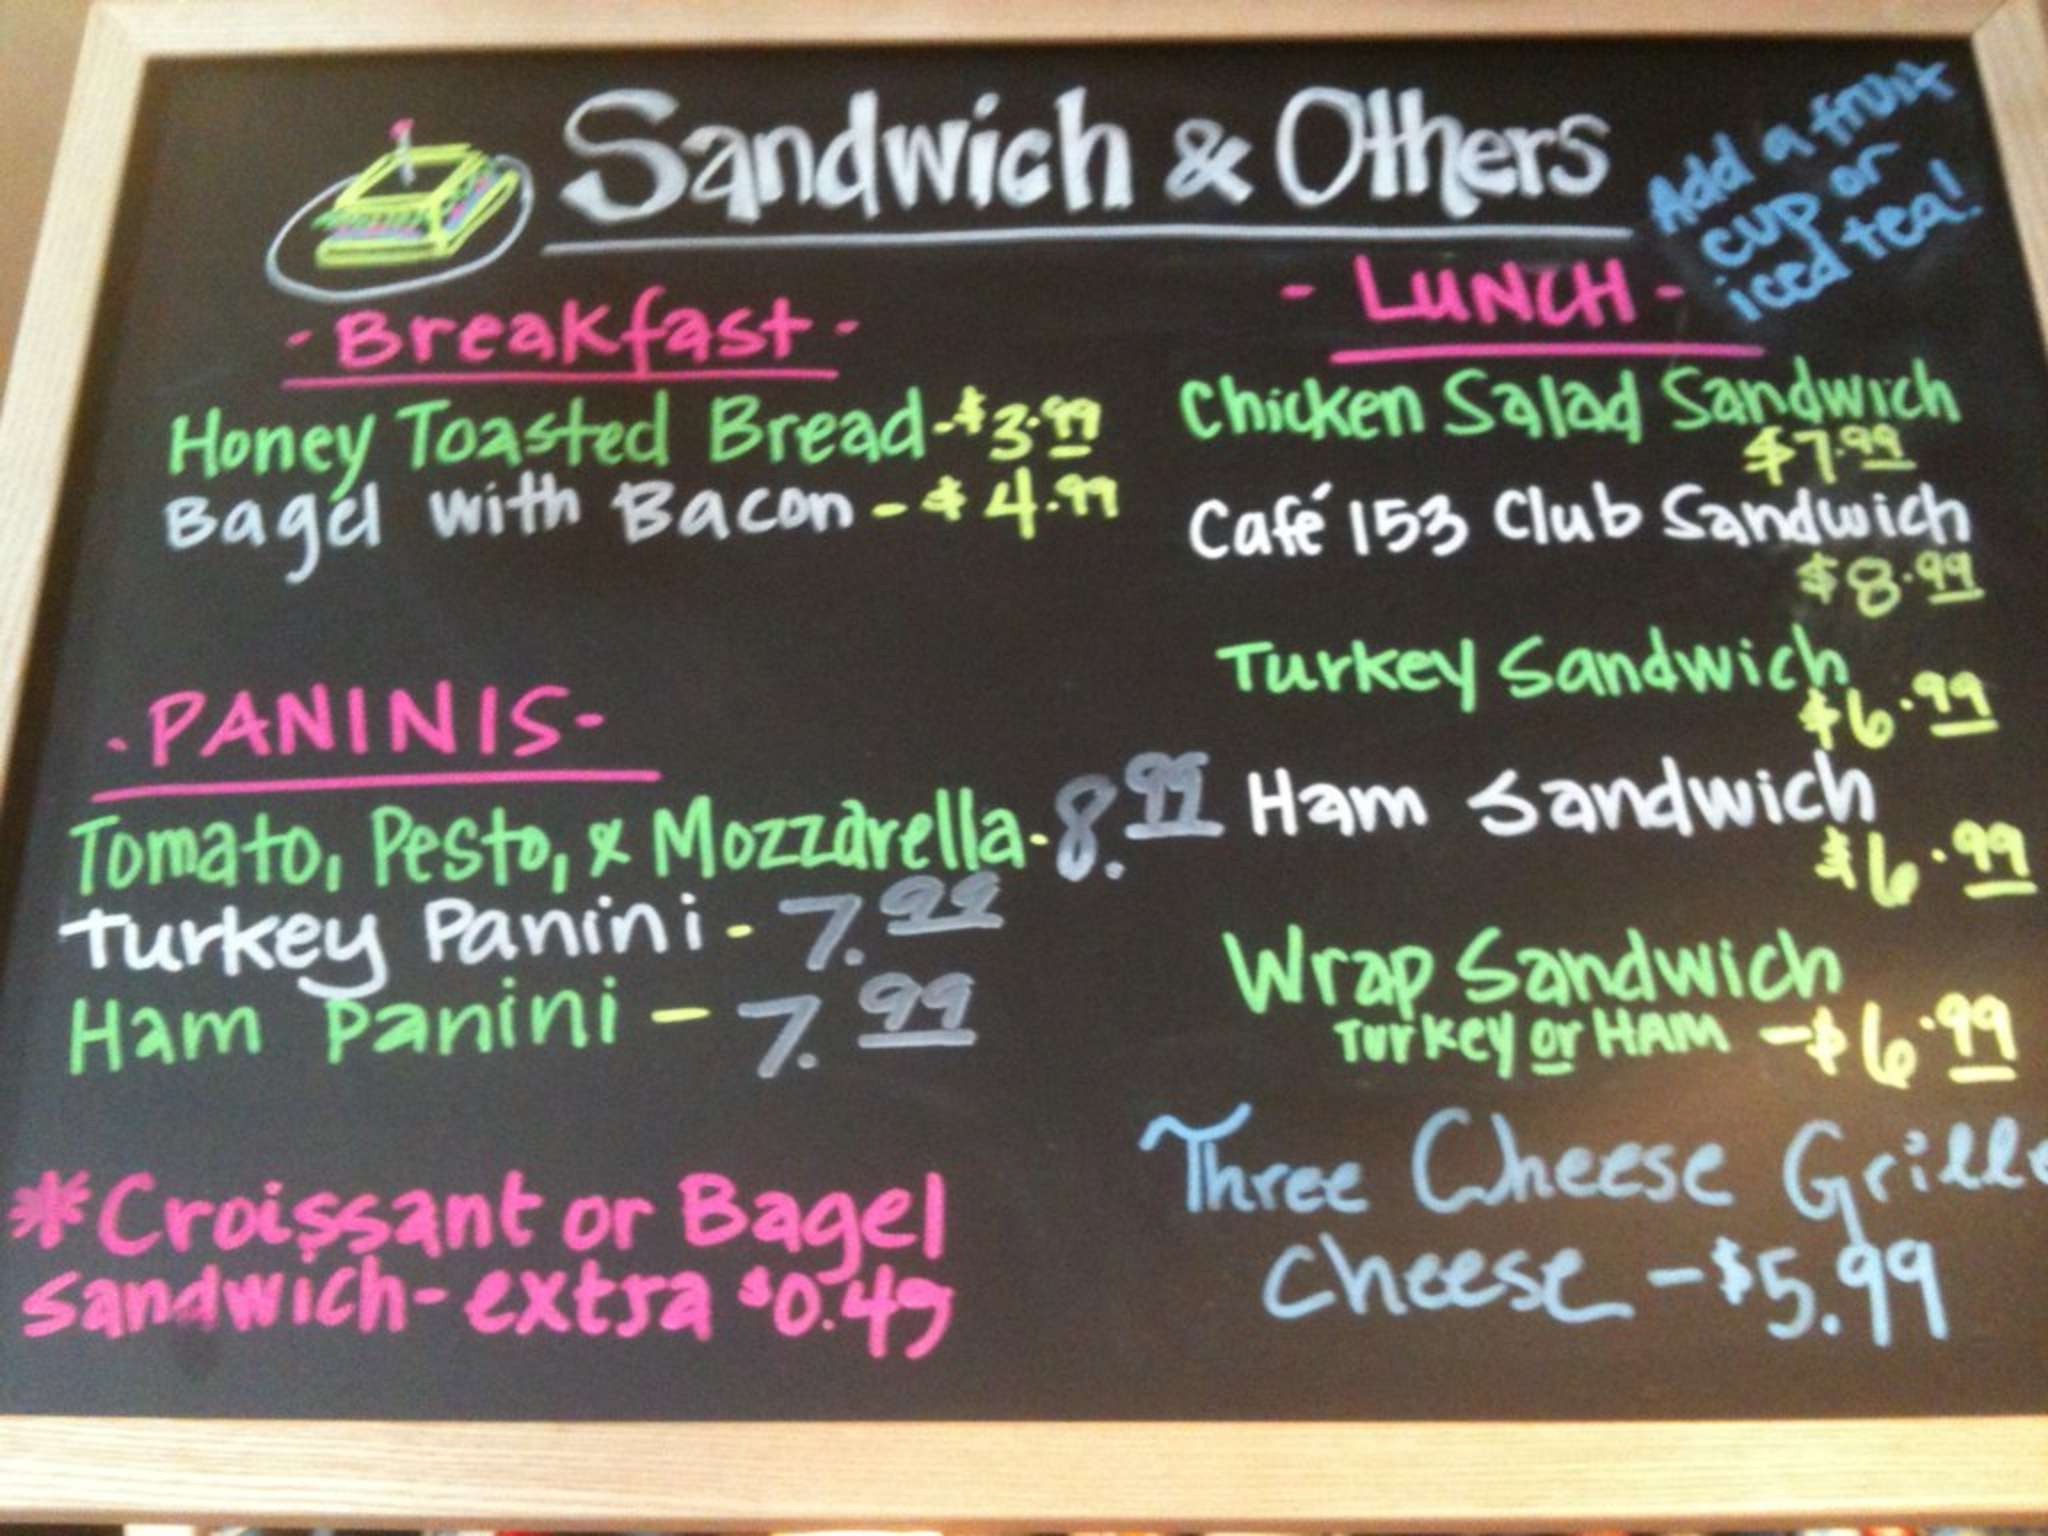 Sandwich & Others
Add a fruit
cup or
iced tea!
- Breakfast -
Honey Toasted Bread - $3.99
Bagel with Bacon - $4.99
- PANINIS -
Tomato, Pesto, & Mozzarella - 8.99
Turkey Panini - 7.99
Ham Panini - 7.99
*Croissant or Bagel
sandwich - extra $0.49
- LUNCH -
Chicken Salad Sandwich
$7.99
Café 153 Club Sandwich
$8.99
Turkey Sandwich
$6.99
Ham Sandwich
$6.99
Wrap Sandwich
Turkey or HAM - $6.99
Three Cheese Grille
Cheese - $5.99